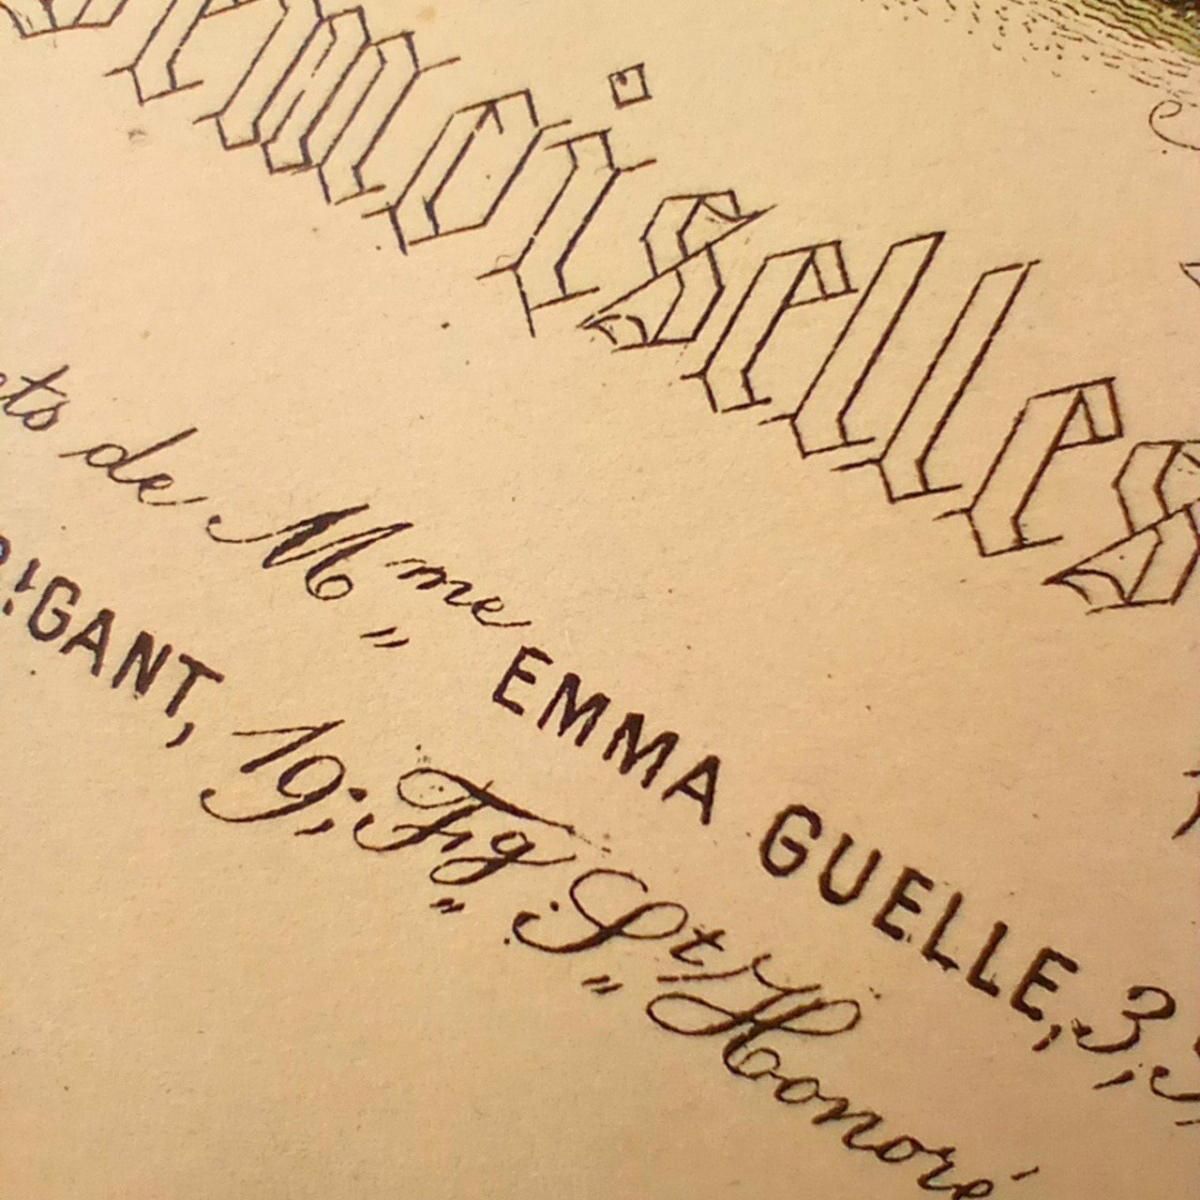 emoiselles
ets de Mme EMMA GUELLE, 3,
RIGANT, 19; Fg St Honoré